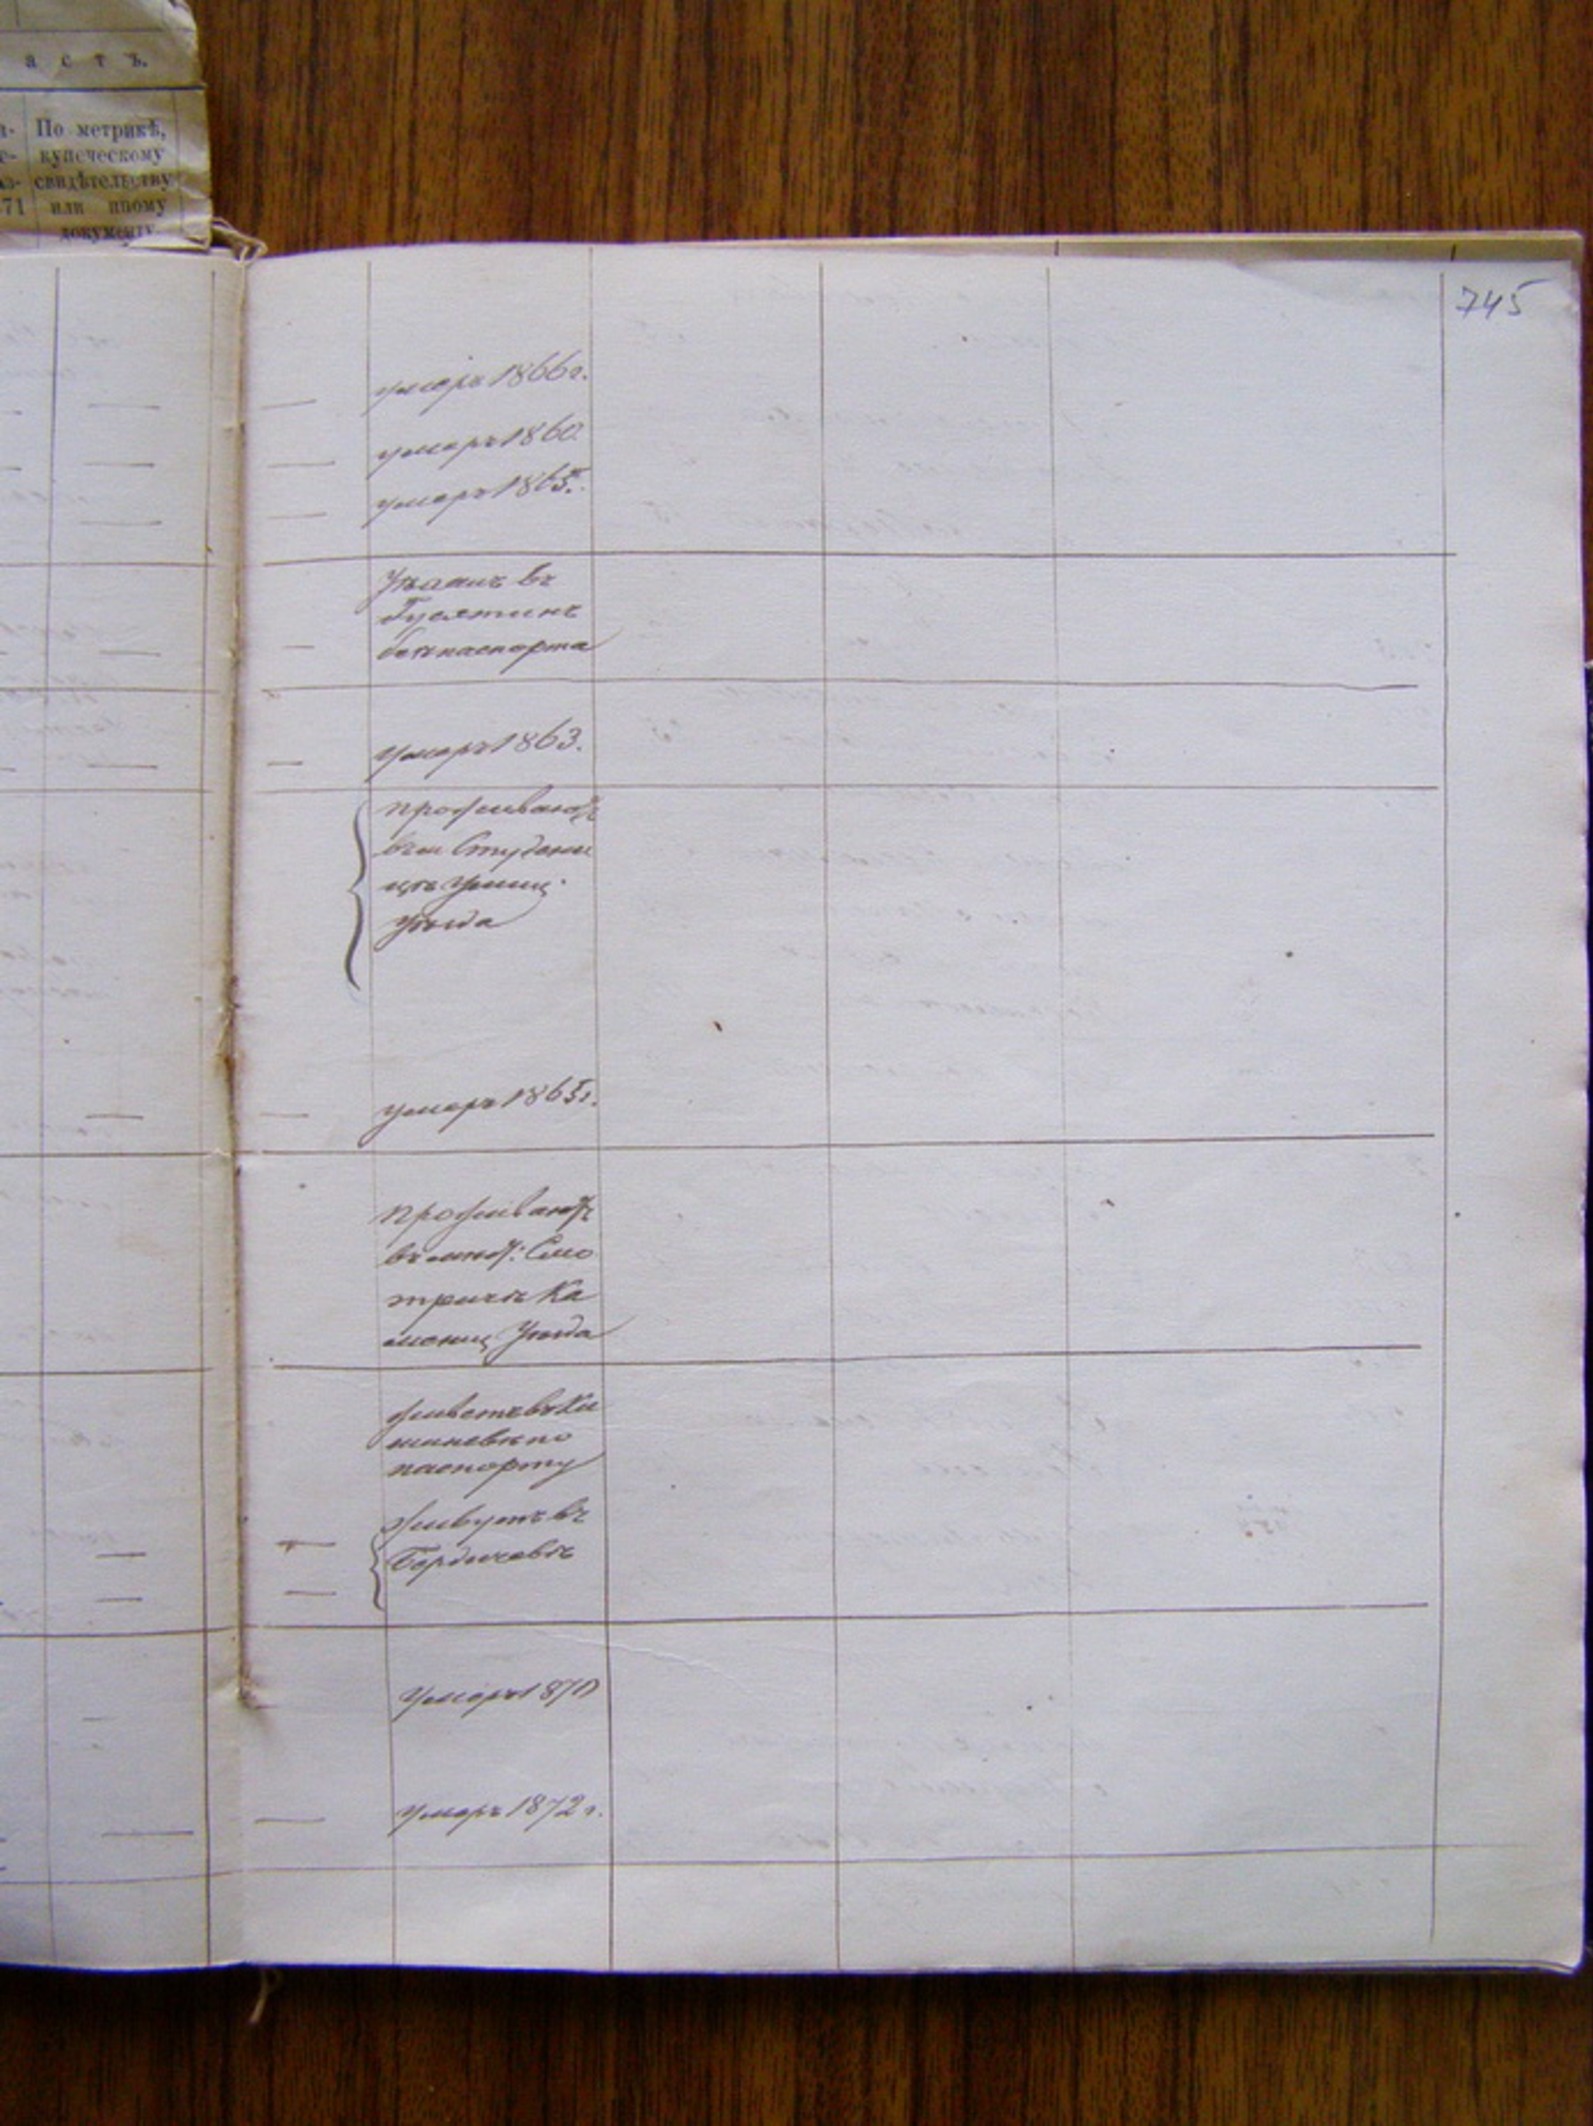 а с т ъ.
По метрикѣ,
купеческому
свидѣтельству
71 или иному
документу.
745
умеръ 1866 г.
умеръ 1860.
умеръ 1865.
въ
Гусятинѣ
безъ паспорта
умеръ 1863.
проживаютъ
въ м Студени
цѣ Ушиц.
уѣзда
умеръ 1865 г.
проживаютъ
въ мѣст: Смо
тричѣ Ка
менец уѣзда
живетъ въ Ки
шиневѣ по
паспорту
живутъ въ
Бердичевѣ
умеръ 1870
умеръ 1872 г.